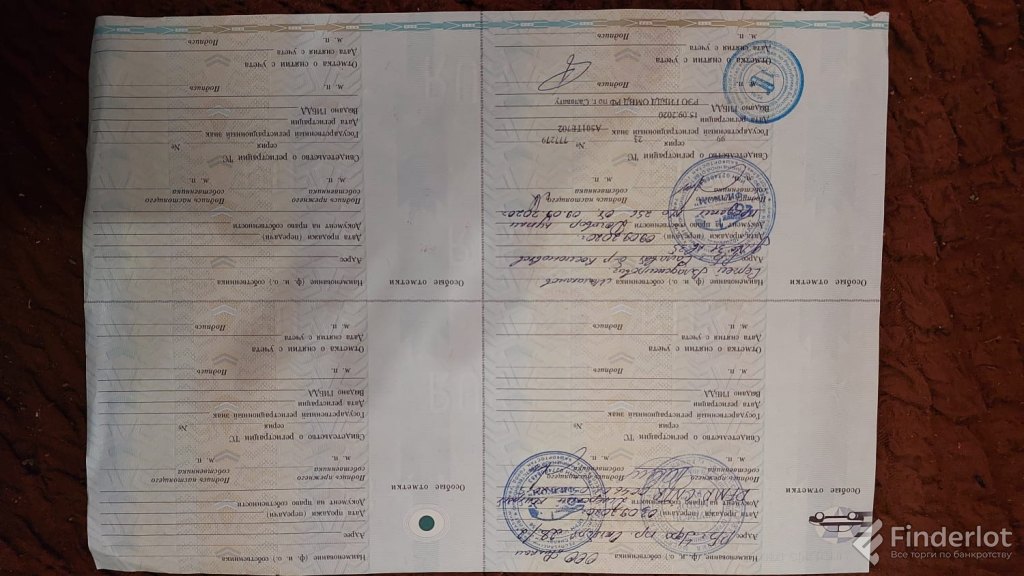 Особые отметки
Наименование (ф. и. о.) собственника
ООО
Адрес
Дата продажи (передачи)
03.09.2020г
Документ на право собственности
Подпись прежнего собственника
Подпись настоящего собственника
М. П.
М. П.
Свидетельство о регистрации ТС
серия №
Государственный регистрационный знак
Дата регистрации
Выдано ГИБДД
М. П.
Подпись
Отметка о снятии с учета
Дата снятия с учета
М. П.
Подпись
Особые отметки
Наименование (ф. и. о.) собственника
Адрес
Дата продажи (передачи)
Документ на право собственности
Подпись прежнего собственника
Подпись настоящего собственника
М. П.
М. П.
Свидетельство о регистрации ТС
серия №
Государственный регистрационный знак
Дата регистрации
Выдано ГИБДД
М. П.
Подпись
Отметка о снятии с учета
Дата снятия с учета
М. П.
Подпись
Особые отметки
Наименование (ф. и. о.) собственника
Сергей Владимирович
Адрес
Дата продажи (передачи)
09.09.2020г
Документ на право собственности
Договор купли
продажи № 251 от 09.09.2020г
Подпись прежнего собственника
Подпись настоящего собственника
М. П.
М. П.
Свидетельство о регистрации ТС
99 23 № 777279
серия
Государственный регистрационный знак А501ТЕ702
Дата регистрации 15.09.2020
Выдано ГИБДД РЭО ГИБДД ОМВД РФ по г. Салавату
М. П.
Подпись
Отметка о снятии с учета
Дата снятия с учета
М. П.
Подпись
Особые отметки
Наименование (ф. и. о.) собственника
Адрес
Дата продажи (передачи)
Документ на право собственности
Подпись прежнего собственника
Подпись настоящего собственника
М. П.
М. П.
Свидетельство о регистрации ТС
серия №
Государственный регистрационный знак
Дата регистрации
Выдано ГИБДД
М. П.
Подпись
Отметка о снятии с учета
Дата снятия с учета
М. П.
Подпись
Finderlot
Все торги по банкротству